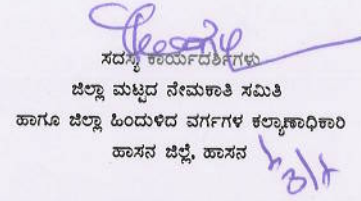 ಸದಸ್ಯ ಕಾರ್ಯದರ್ಶಿಗಳು
ಜಿಲ್ಲಾ ಮಟ್ಟದ ನೇಮಕಾತಿ ಸಮಿತಿ
ಹಾಗೂ ಜಿಲ್ಲಾ ಹಿಂದುಳಿದ ವರ್ಗಗಳ ಕಲ್ಯಾಣಾಧಿಕಾರಿ
ಹಾಸನ ಜಿಲ್ಲೆ, ಹಾಸನ